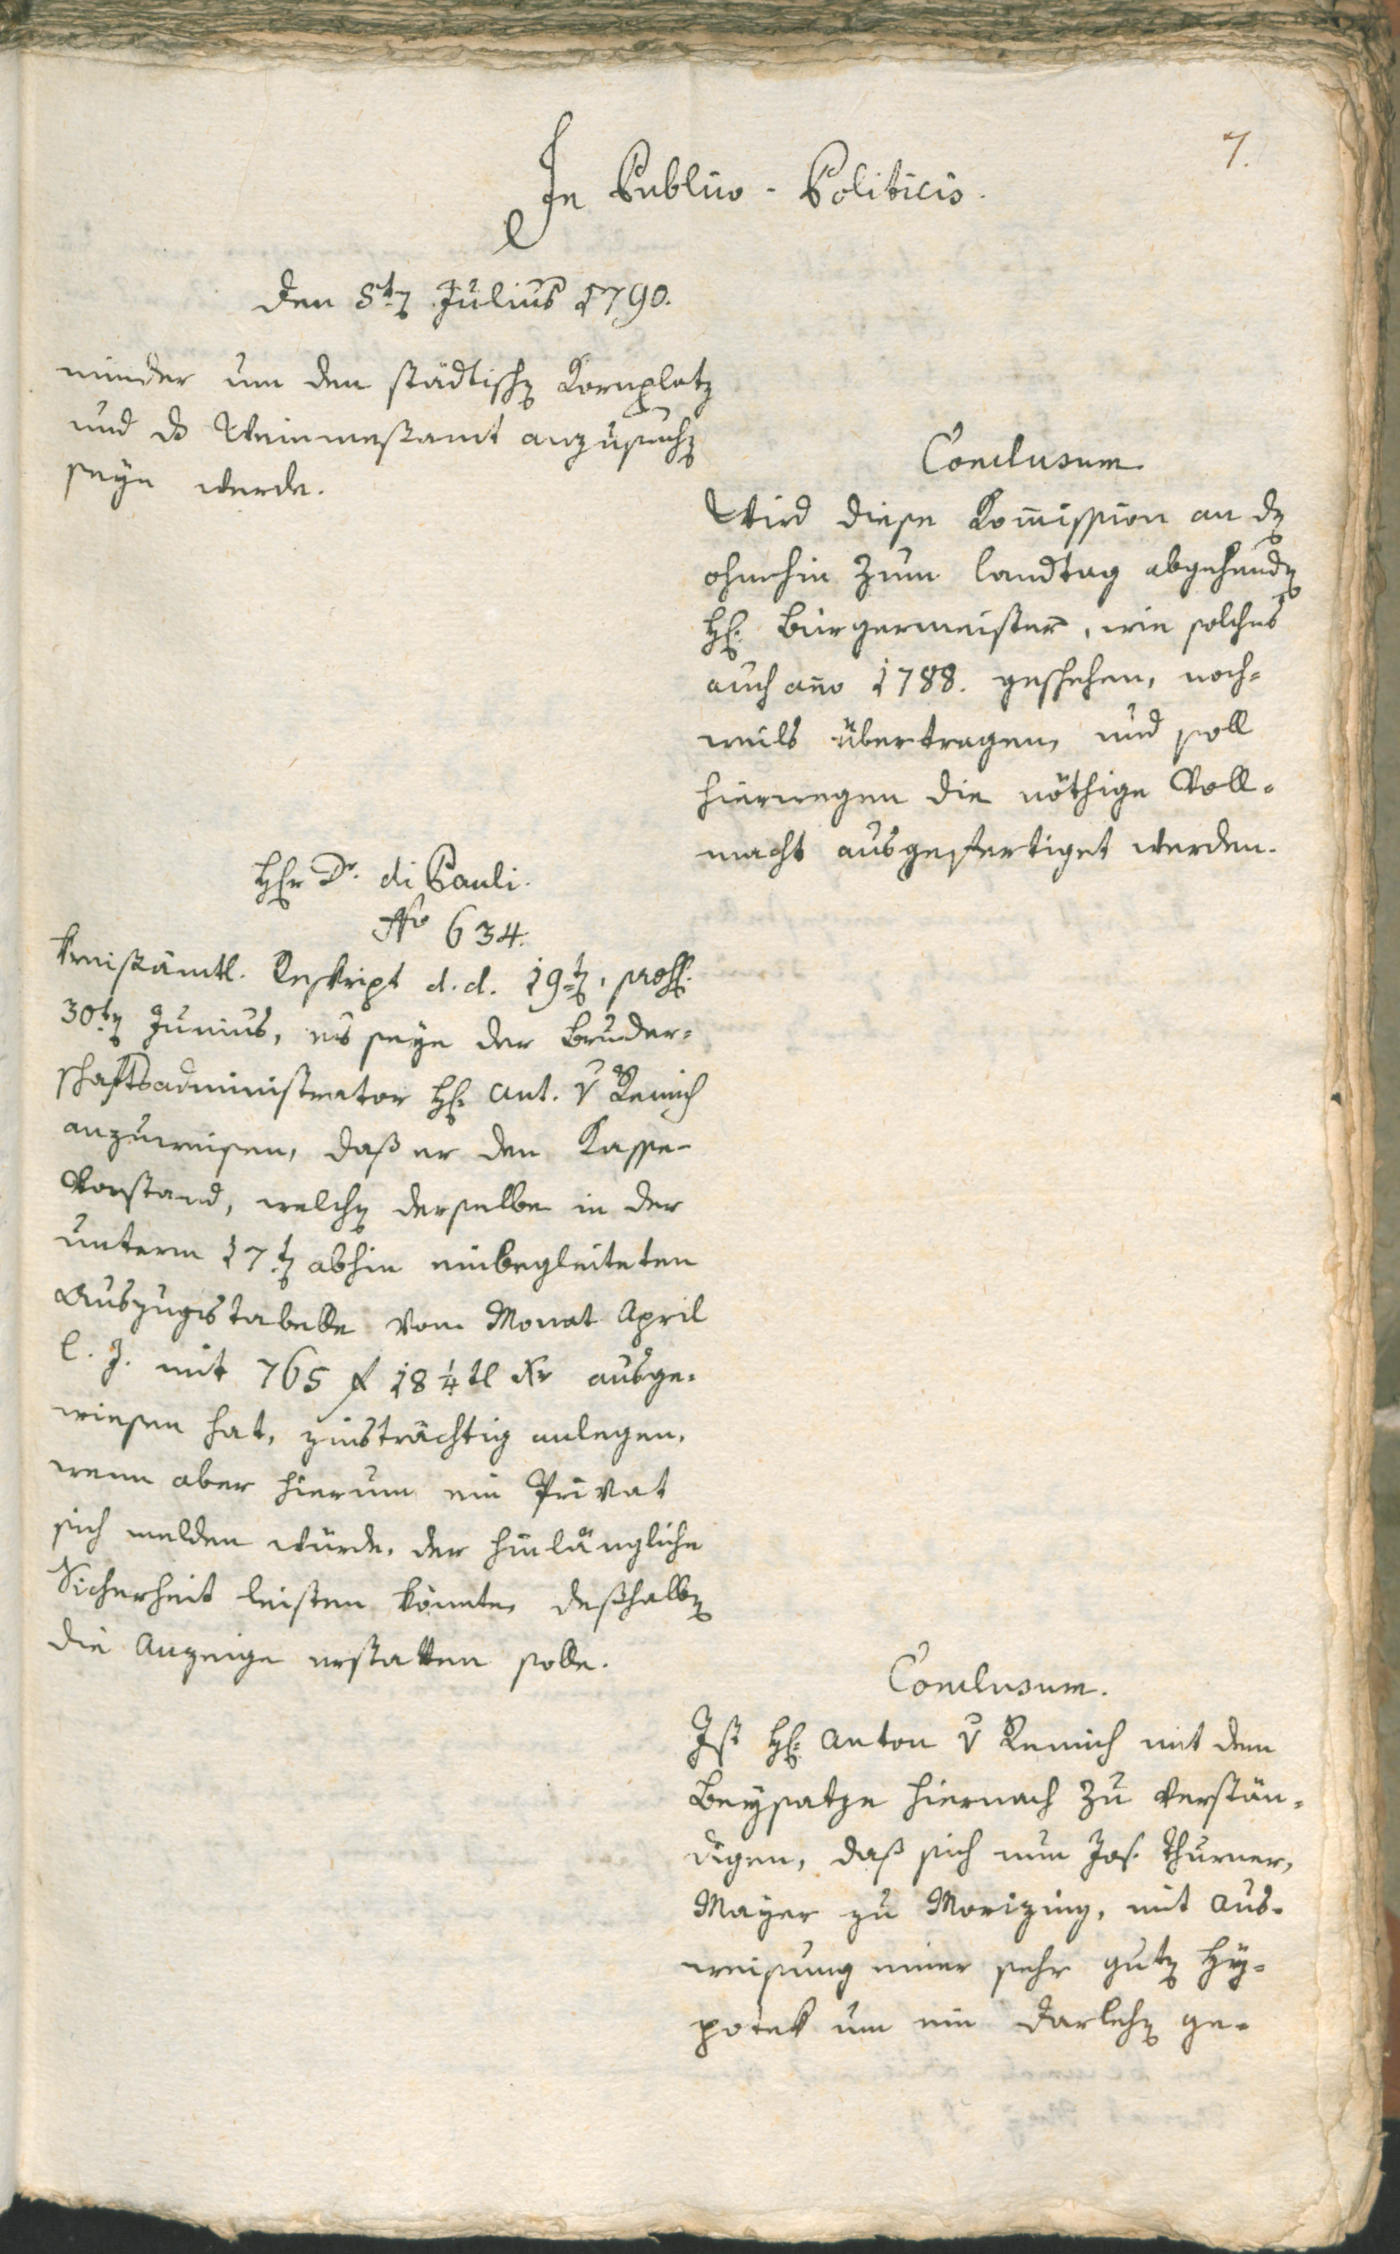 7.
In Publico-Politicis.
den 8tn Julius 1790.
minder um den städtischn Kornplatz
und ds Weinmeßamt anzusuchn
seyn werde.
Conclusum.
Wird diese Kom̄ission an dn
ohnehin zum Landtag abgehendn
H: Bürgermeister, wie solches
auch an̄o 1788. geschehen, noch-
weils übertragen, und soll
hierwegen die nöthige Voll-
macht ausgefertiget werden.
Hr Dr. di Pauli.
No 634.
Kreisämtl. Reskript d. d. 19tn, 
30tn Junius, es seye der Bruder-
schaftsadministrator H: Ant. v Remich
anzuweisen, daß er den Kasse-
vorstand, welchn derselbe in der
unterm 17tn abhin einbegleiteten
Auszugstabelle vom Monat April
l. J. mit 765 f 18 1/4 tl Kr ausge-
wiesen hat, zinsträchtig anlegen,
wenn aber hierum ein Privat
sich melden würde, der hinlängliche
Sicherheit leisten könnte, deßhalbn
die Anzeige erstatten solle.
Conclusum.
Ist H: Anton v Remich mit dem
Beysatze hiernach zu verstän-
digen, daß sich nun Jos. Thurner,
Mayer zu Morizing, mit Aus-
weisung einer sehr gutn Hy-
potek um ein Darlehn ge-